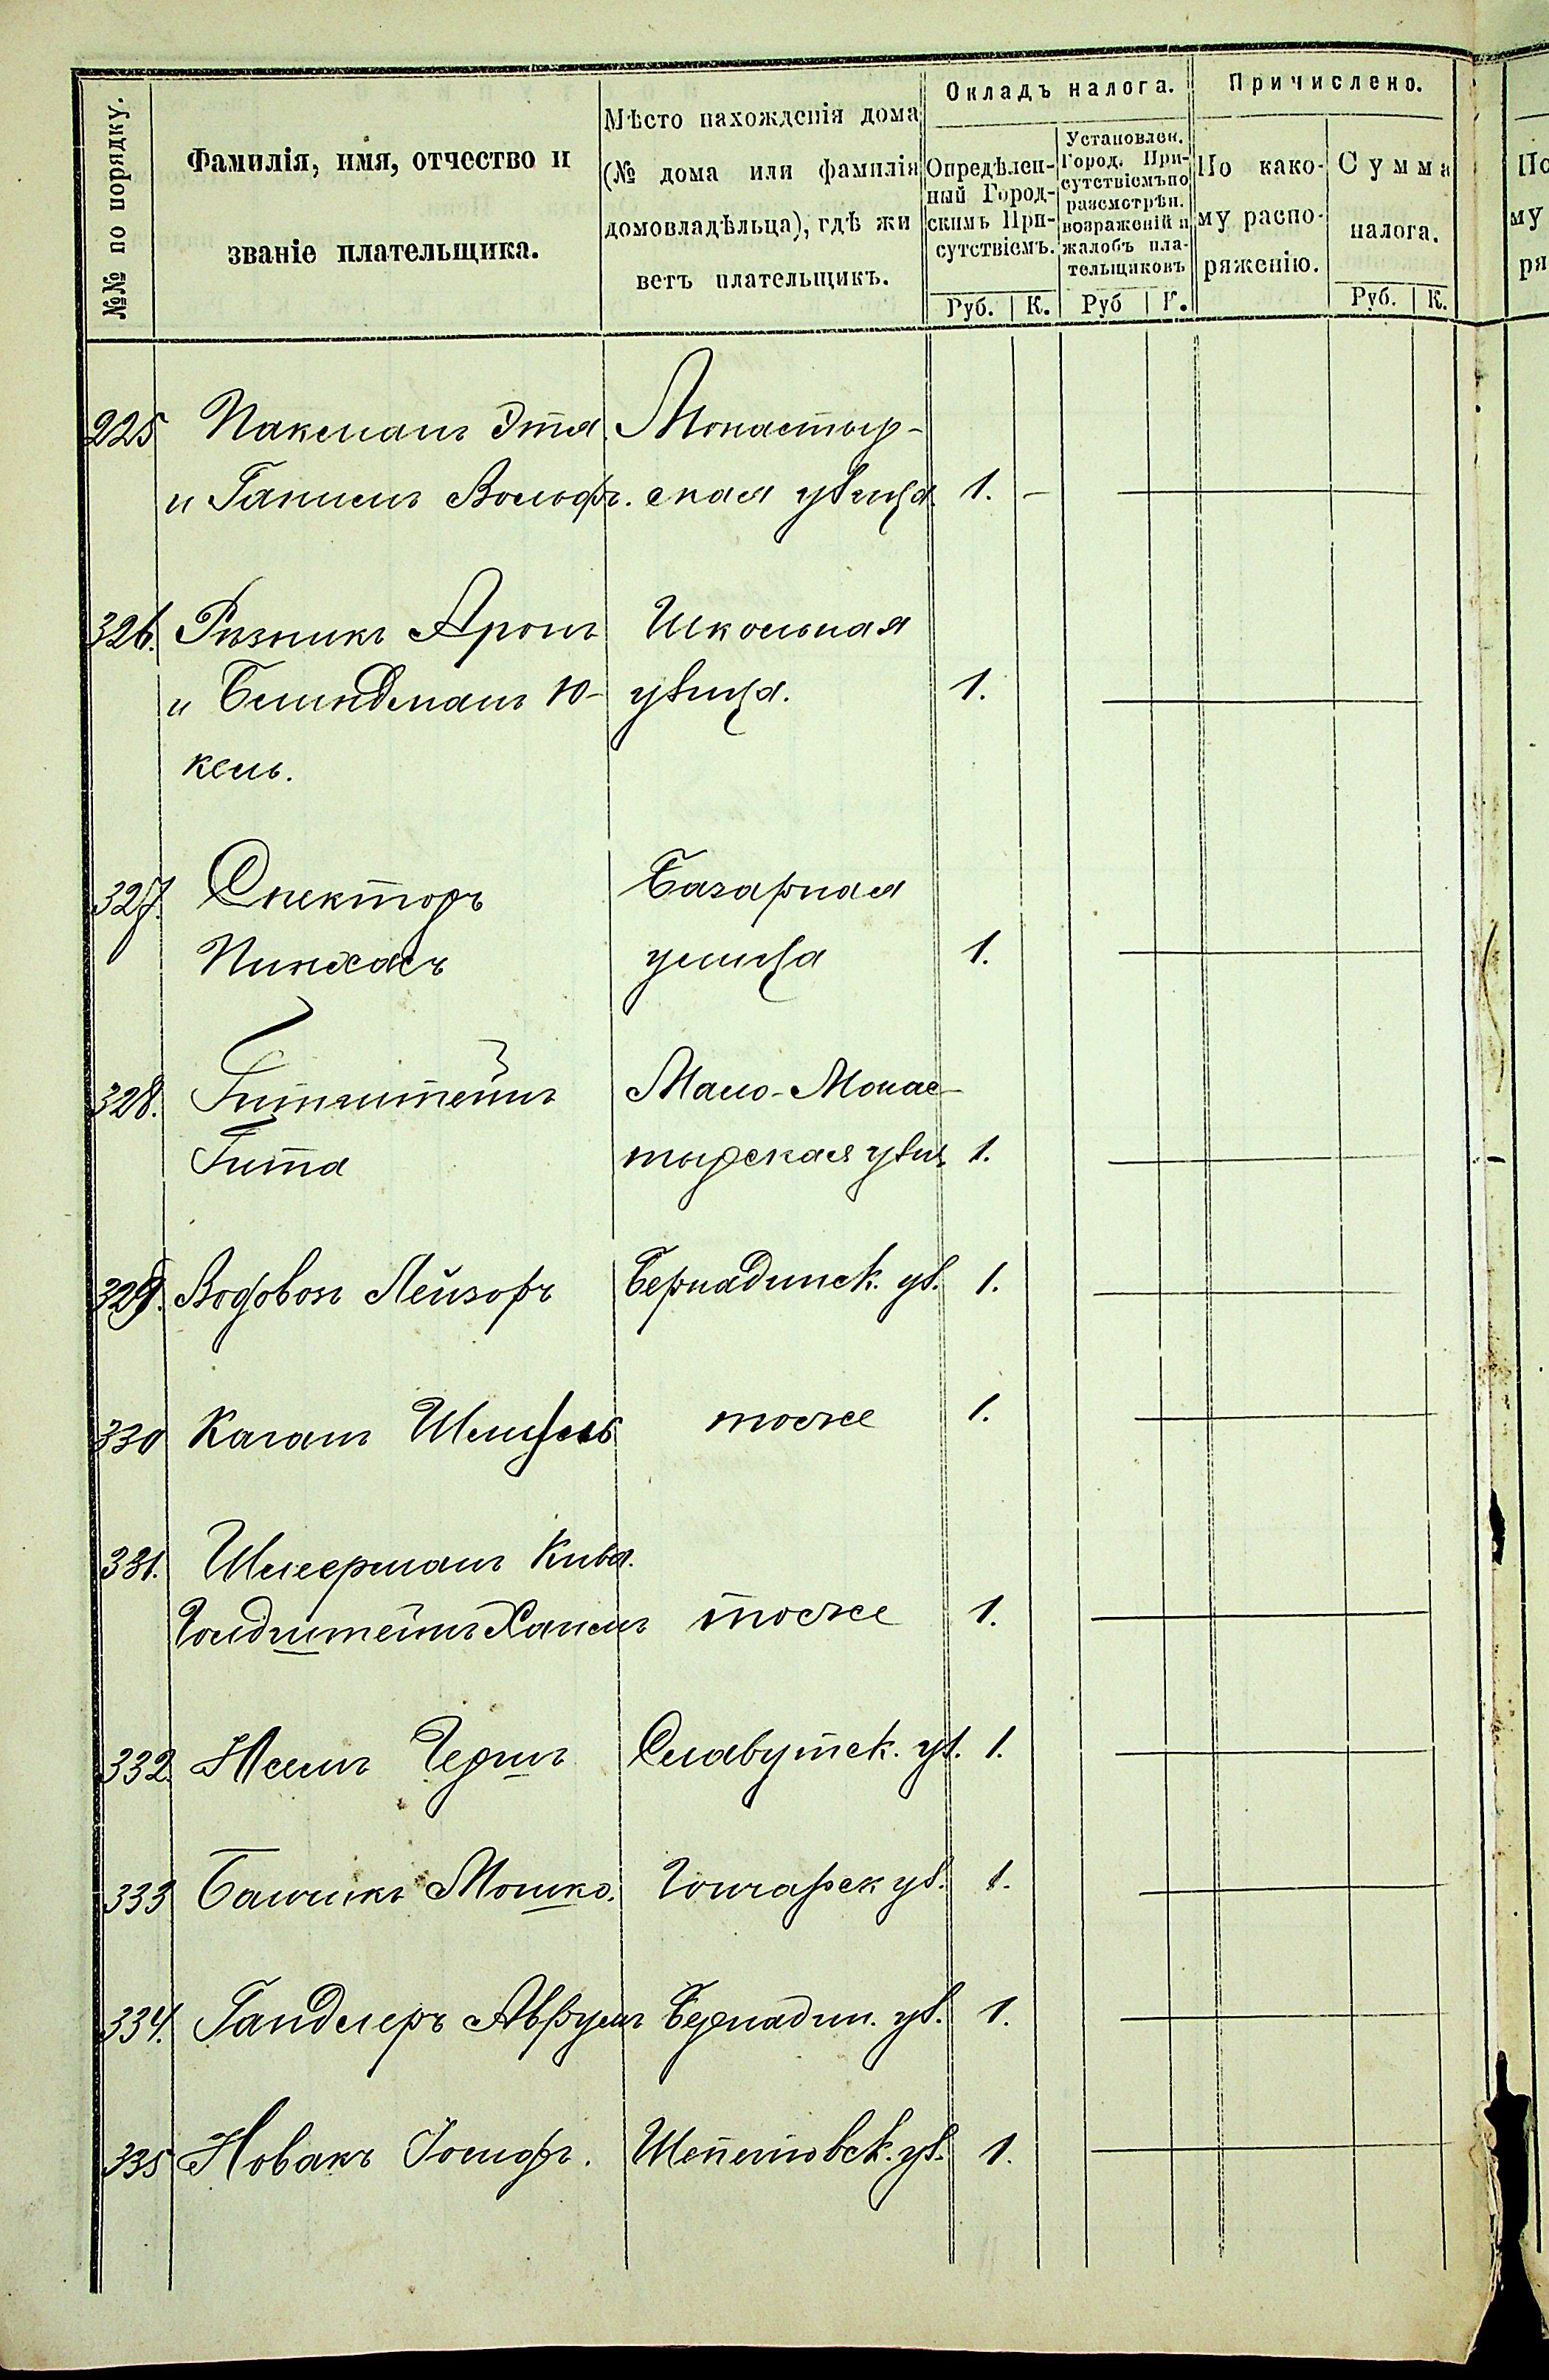 №№ по порядку.
Фамилія, имя, отчество и
званіе плательщика.
Мѣсто нахожденія дома
(№ дома или фамилія
домовладѣльца), гдѣ жи
ветъ плательщикъ.
Окладъ налога.
Опредѣлен-
ный Город-
скимъ При-
сутствіемъ.
Установлен.
Город. При-
сутствіемъ по
разсмотрѣн.
возраженій и
жалобъ пла-
тельщиковъ
Руб. К. Руб К.
Причислено.
По како-
му распо-
ряженію.
Сумма
налога.
Руб. К.
По
му
ря
225 Пакманъ Этя. Монастыр-
и Ганисъ Вольфъ. ская улица. 1. -
326. Рѣзникъ Аронъ Школьная
и Блиндманъ Ю- улица. 1.
кель.
327. Спекторъ Базарная
Пинхасъ улица 1.
328. Гитштейнъ Мало-Монас-
Гита тырская улиц. 1.
329. Водовозъ Лейзоръ Бернадинск. ул. 1.
330 Каганъ тоже 1.
331. Шлеерманъ Кива.
Гольдштейнъ тоже 1.
332. Черкъ Славутск. ул. 1.
333 Балчикъ Мошко. Гончарск ул. 1.
334. Гандлеръ Аврумъ Бернадин. ул. 1.
335 Новакъ Іосифъ. Шепетовск. ул. 1.